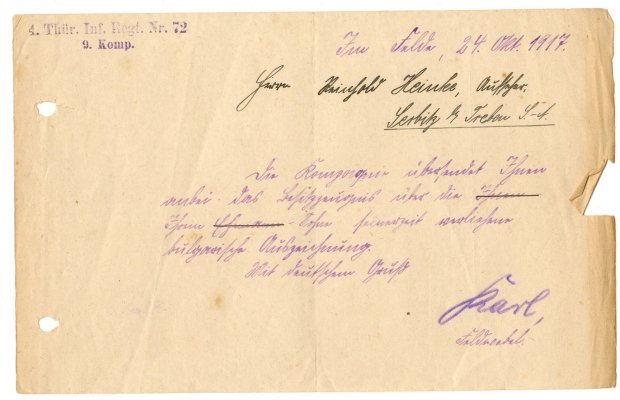 4. Thür. Inf. Regt. Nr. 72
9. Komp.
Im Felde, 24. Okt. 1917.
Herrn Reinhold Heinke, Aufseher.
Serbitz b/ Treben S.-A.
Die Kompagnie übersendet Ihnen
anbei das Besitzzeugnis über die Ihnen
Ihrem Ehemann-Sohne seinerzeit verliehene
bulgarische Auszeichnung.
Mit deutschem Gruß
Karl,
Feldwebel.